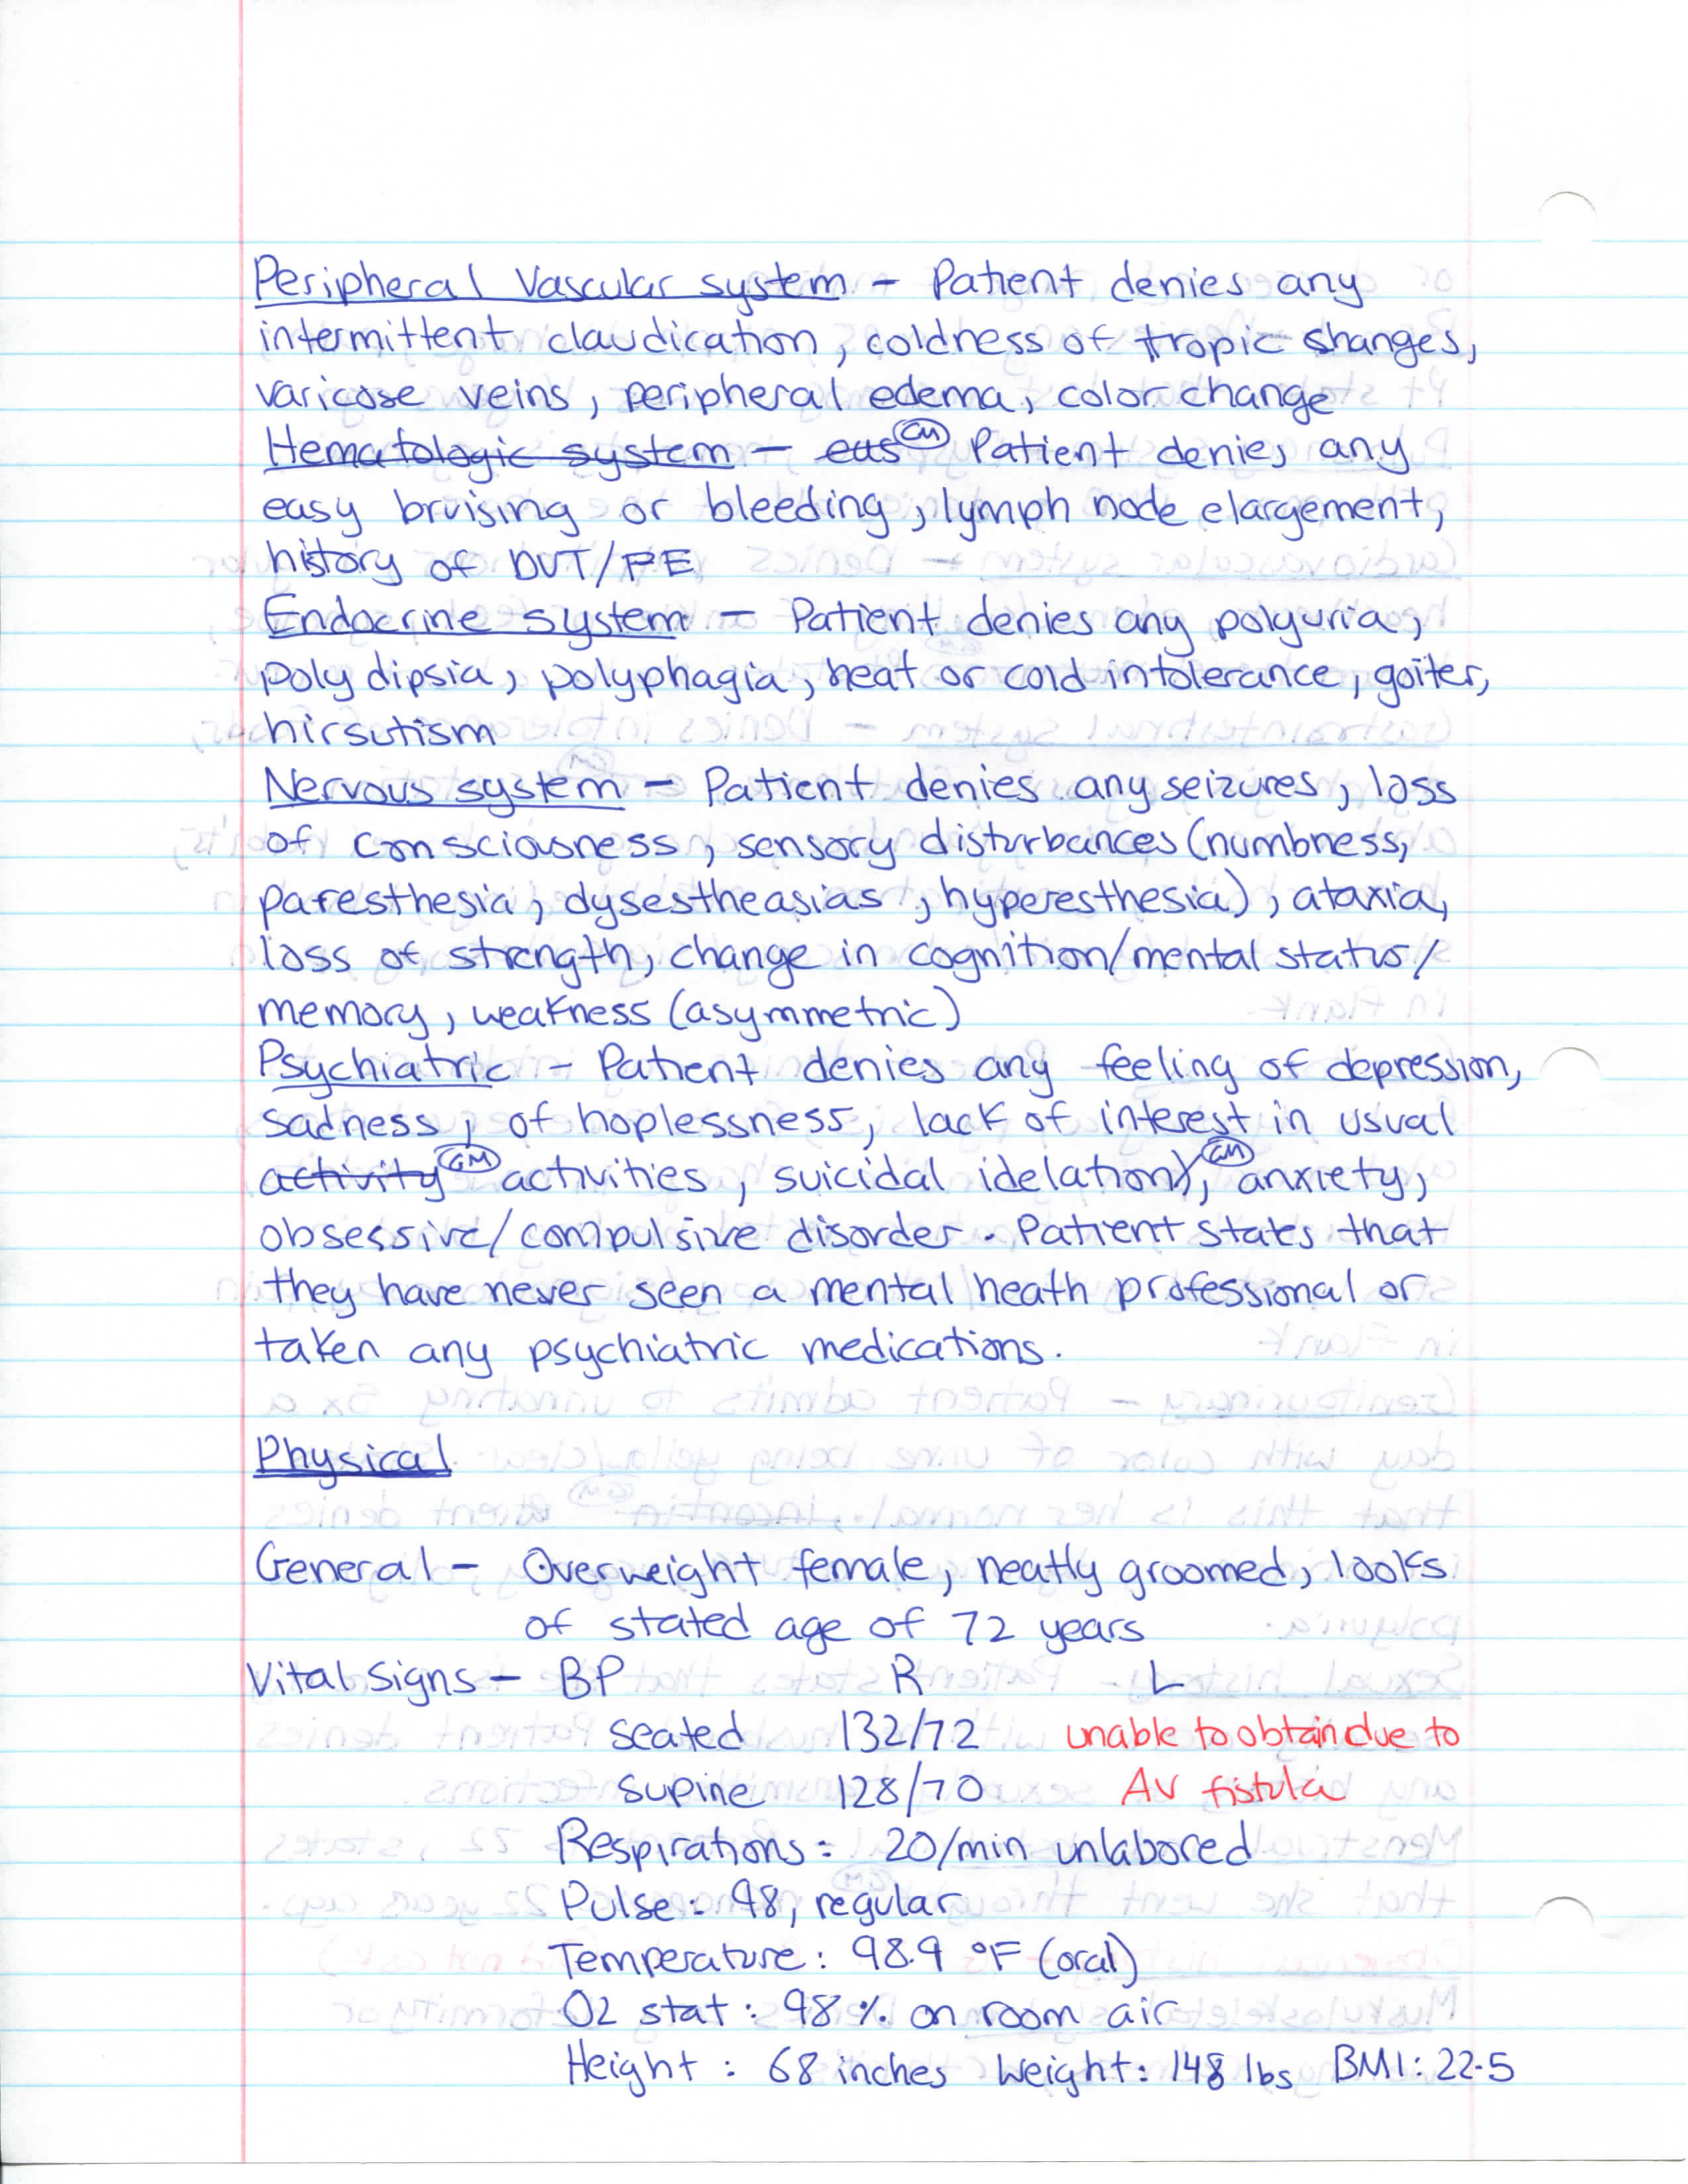 Peripheral Vascular system - Patient denies any
intermittent claudication, coldness of tropic changes,
varicose veins, peripheral edema, color change
Hematologic system - eus GM Patient denies any
easy bruising or bleeding, lymph node elargement,
history of DVT/PE
Endocrine system - Patient denies any polyuria,
polydipsia, polyphagia, heat or cold intolerance, goiter,
hirsutism
Nervous system - Patient denies any seizures, loss
of consciousness, sensory disturbances (numbness,
paresthesia, dysestheasias, hyperesthesia), ataxia,
loss of strength, change in cognition/mental status/
memory, weakness (asymmetric)
Psychiatric - Patient denies any feeling of depression,
sadness, of hoplessness, lack of interest in usual
activity GM activities, suicidal idelation), GM anxiety,
obsessive/compulsive disorder. Patient states that
they have never seen a mental heath professional or
taken any psychiatric medications.
Physical
General - Overweight female, neatly groomed, looks
of stated age of 72 years
Vital Signs - BP R L
seated 132/72 unable to obtain due to
supine 128/70 AV fistula
Respirations: 20/min unlabored
Pulse: 98, regular
Temperature: 98.9 °F (oral)
O2 stat: 98% on room air
Height: 68 inches Weight: 148 lbs BMI: 22.5